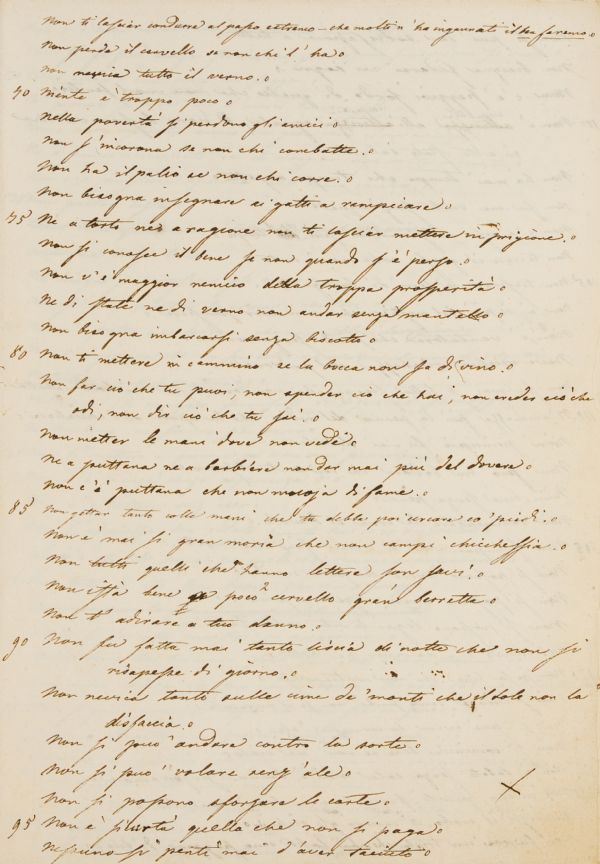 Non ti lasciar condurre al passo estremo – che molti n'ha ingannati il ben faremo.
Non perde il cervello se non chi l'ha
Non nevica tutto il verno.
70 Niente è troppo poco
Nella povertà si perdono gli amici
Non s'incorona se non chi combatte.
Non ha il palio se non chi corre.
Non bisogna insegnare ai gatti a rampicare
75 Ne a torto ne a ragione non ti lasciar mettere in prigione.
Non si conosce il bene se non quando s'è perso.
Non v'è maggior nemico della troppa prosperità
Ne di state ne di verno non andar senza mantello
Non bisogna imbarcarsi senza biscotto
80 Non ti mettere in cammino se la bocca non sa di vino.
Non far ciò che tu puoi, non spender ciò che hai, non creder ciò che
odi, non dir ciò che tu sai.
Non metter le mani dove non vedi
Ne a puttana ne a barbiere non dar mai più del dovere
Non c'è puttana che non muoja di fame.
85 Non gettar tanto colle mani che tu debba poi cercare co' piedi.
Non è mai si gran moria che non campi chicchessia.
Non tutti quelli che hanno lettere son savi.
Non istà bene poco cervello gran berretta
Non t'adirare a tuo danno.
90 Non fu fatta mai tanto liscia di notte che non si
risapesse di giorno.
Non nevica tanto sulle cime de' monti che il sole non la
disfaccia.
Non si può andare contro la sorte
Non si può volare senz'ale
Non si possono sforzare le carte
95 Non è quella che non si paga
Nessuno si pentì mai d'aver taciuto